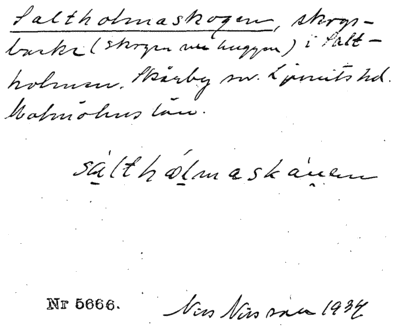 Saltholmaskogen, skogs-
backe (skogen nu huggen) i Salt-
holmen. Skårby sn. Ljunits hd.
Malmöhus län.
sàlthólmaskåu̯en
Nr 5666. Nils Nilsson 1934